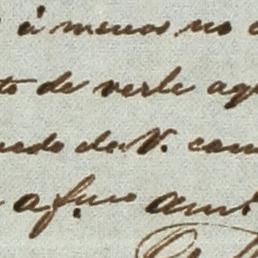 á menos no
to de verle aq
uedo de V. com
afmo am.